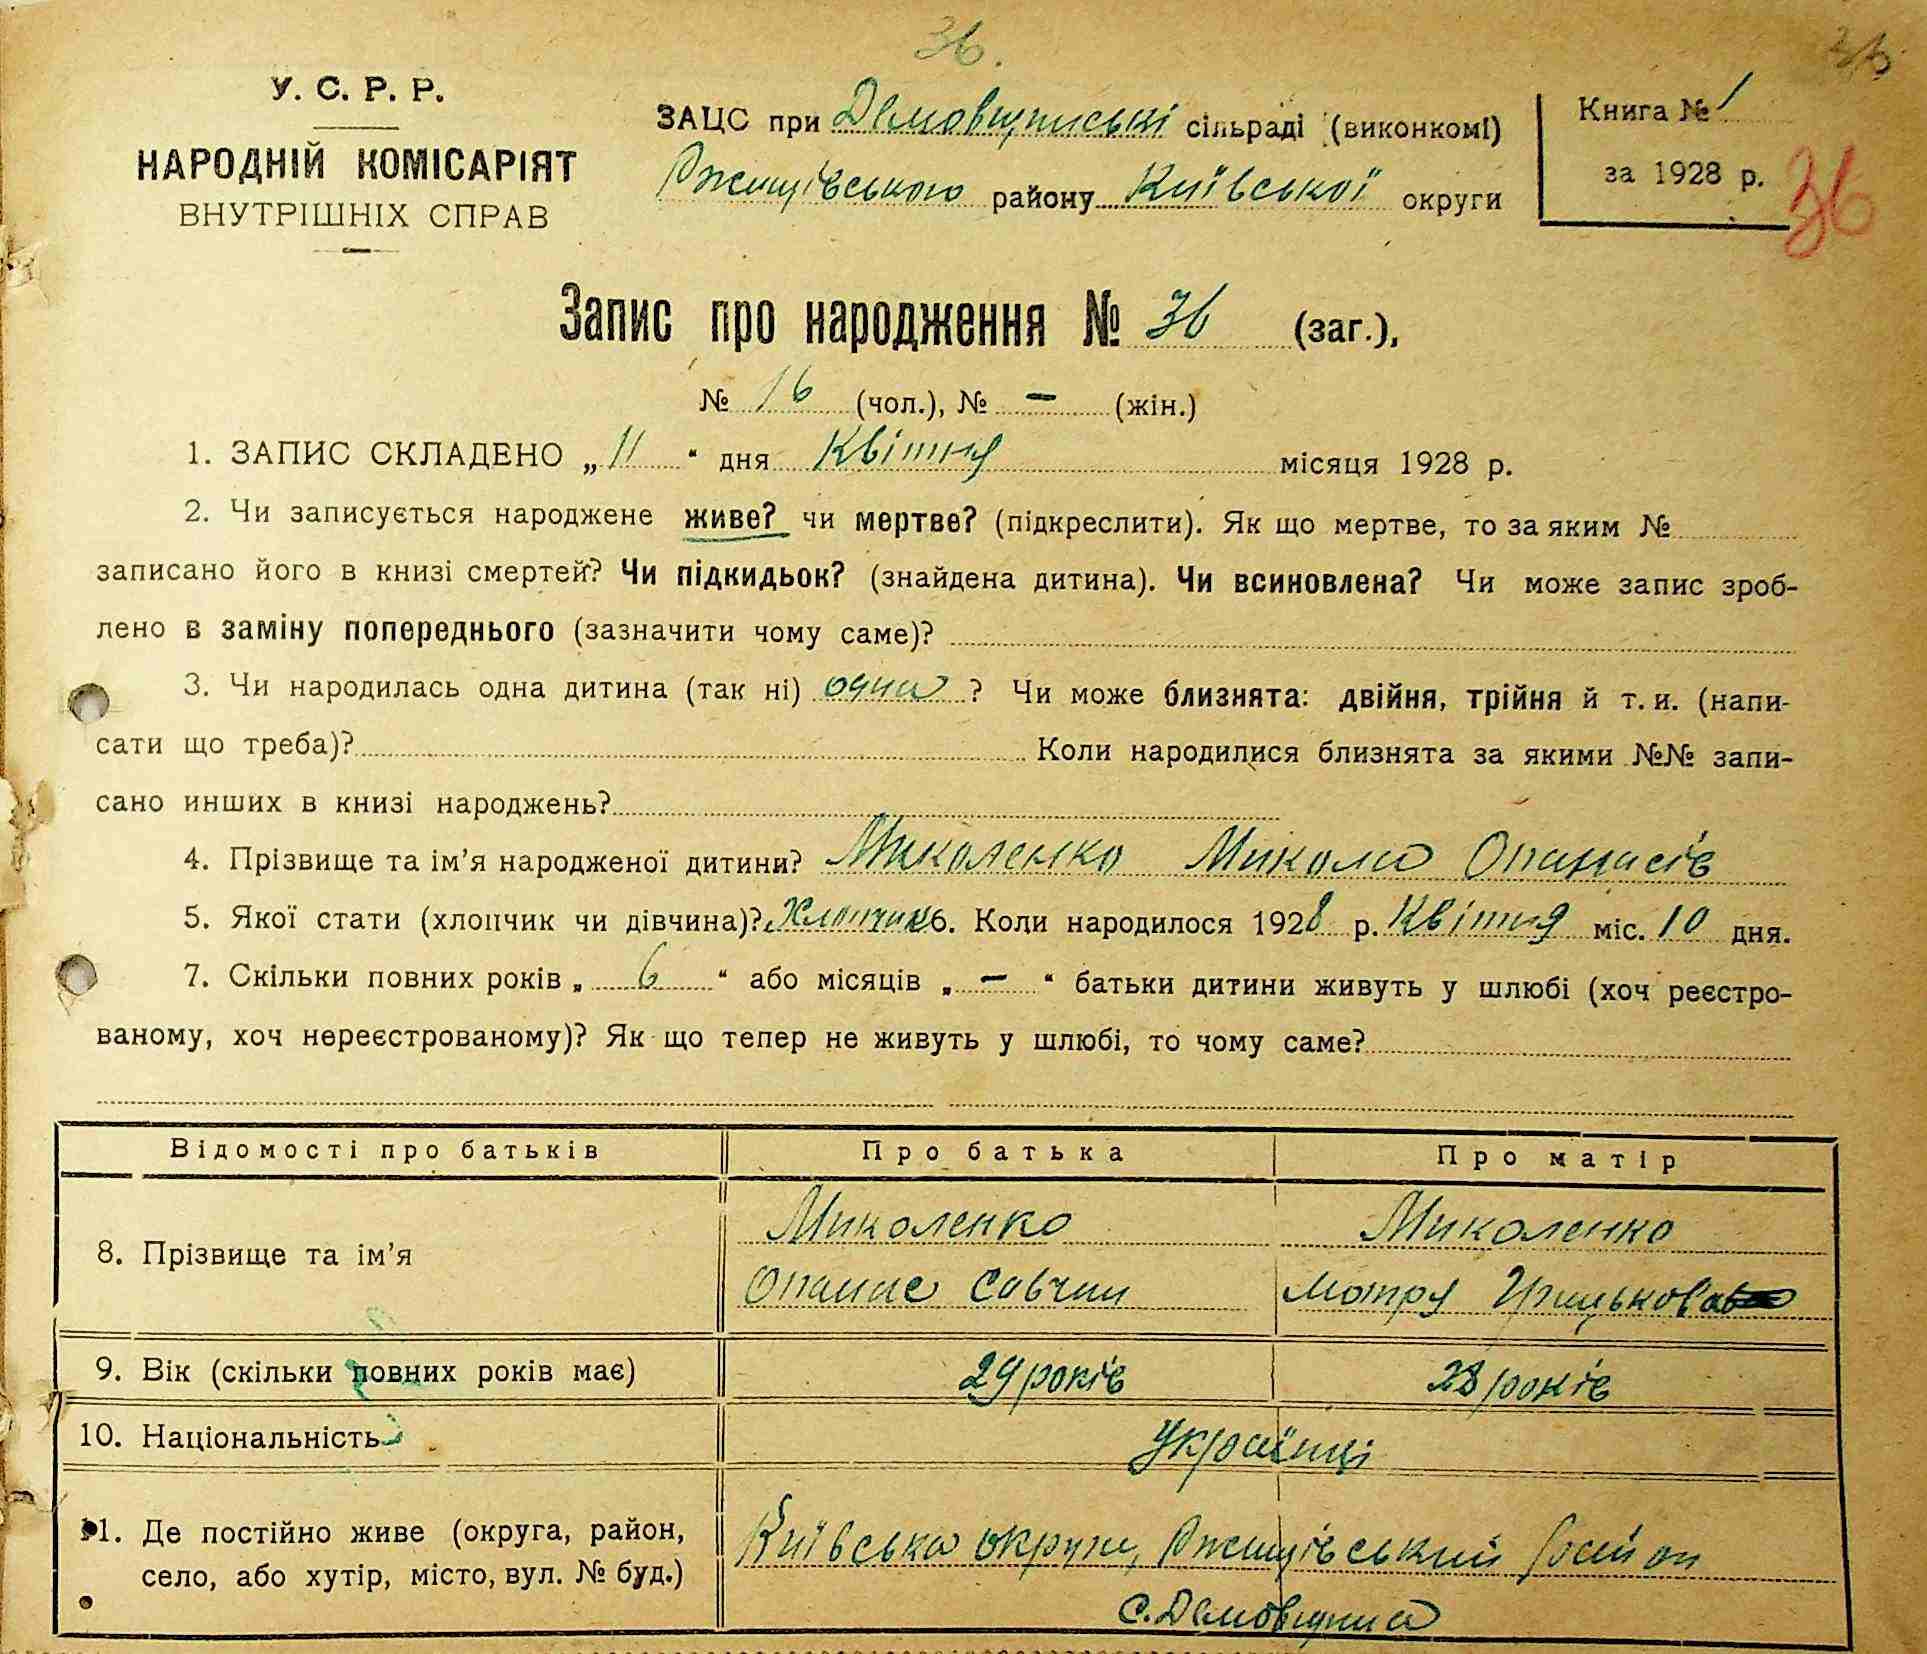 36.
36
У. С. Р. Р.
НАРОДНІЙ КОМІСАРІЯТ
ВНУТРІШНІХ СПРАВ
ЗАЦС при Демовщинські сільраді (виконкомі)
Ржищівського району Київської округи
Книга № 1
за 1928 р.
36
Запис про народження № 36 (заг.),
№ 16 (чол.), № – (жін.)
1. ЗАПИС СКЛАДЕНО „ 11 “ дня Квітня місяця 1928 р.
2. Чи записується народжене живе? чи мертве? (підкреслити). Як що мертве, то за яким №
записано його в книзі смертей? Чи підкидьок? (знайдена дитина). Чи всиновлена? Чи може запис зроб-
лено в заміну попереднього (зазначити чому саме)?
3. Чи народилась одна дитина (так ні) одна ? Чи може близнята: двійня, трійня й т. и. (напи-
сати що треба)? Коли народилися близнята за якими №№ запи-
сано инших в книзі народжень?
4. Прізвище та ім’я народженої дитини? Миколенко Микола Опанасів
5. Якої стати (хлопчик чи дівчина)? Хлопчик 6. Коли народилося 1928 р. Квітня міс. 10 дня.
7. Скільки повних років „ 6 “ або місяців „ – “ батьки дитини живуть у шлюбі (хоч реєстро-
ваному, хоч нереєстрованому)? Як що тепер не живуть у шлюбі, то чому саме?
Відомості про батьків Про батька Про матір
8. Прізвище та ім’я
Миколенко Миколенко
Опанас Савчин Мотря Грицькова
9. Вік (скільки повних років має) 29 років 28 років
10. Національність Українці
11. Де постійно живе (округа, район,
село, або хутір, місто, вул. № буд.)
Київська округа, Ржищівський район
с. Демовщина